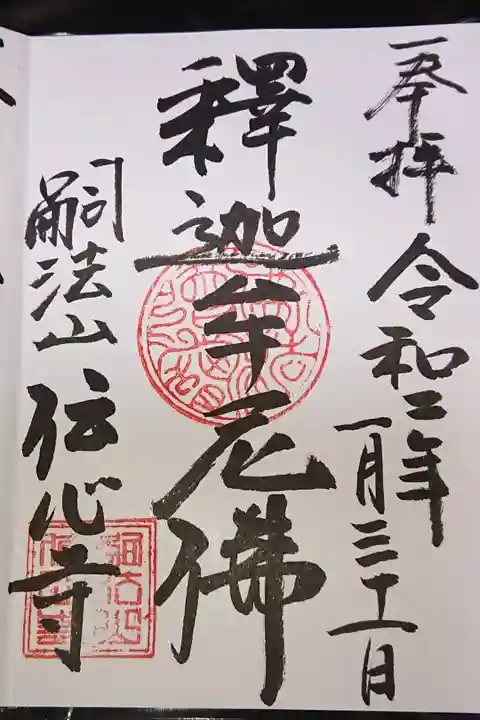 奉拝 令和二年
一月三十一日
釋迦牟尼佛
嗣法山 伝心寺